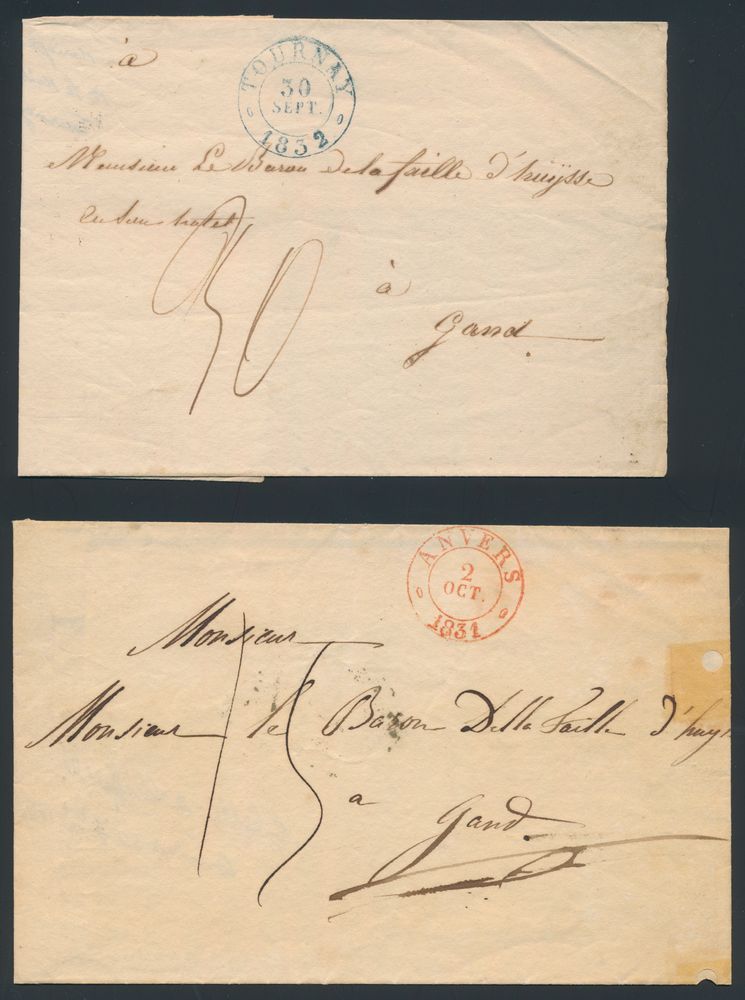 à
TOURNAY
30
SEPT.
1832
Monsieur Le Baron de la faille d'huÿsse
en son hotel
30
à
Gand
ANVERS
2
OCT.
1831
Monsieur
15
Monsieur le Baron Della Faille d'huy
a
Gand